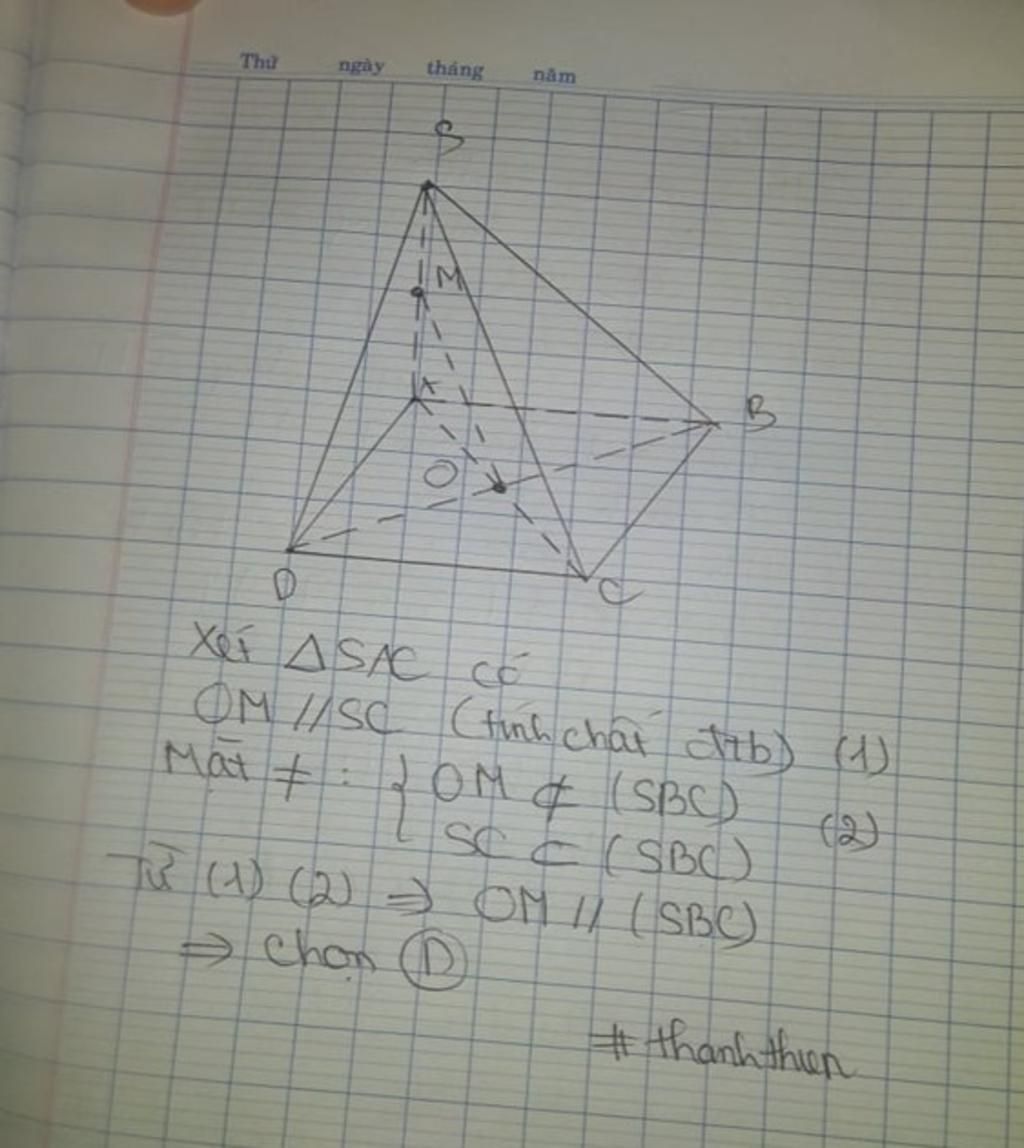 Thứ ngày tháng năm
S
M
A
B
O
D
C
Xét ΔSAC có
OM // SC (tính chất đtb) (1)
Mặt ≠ : { OM ⊄ (SBC)
SC ⊂ (SBC) (2)
Từ (1) (2) ⇒ OM // (SBC)
⇒ Chọn D
# thanhthien